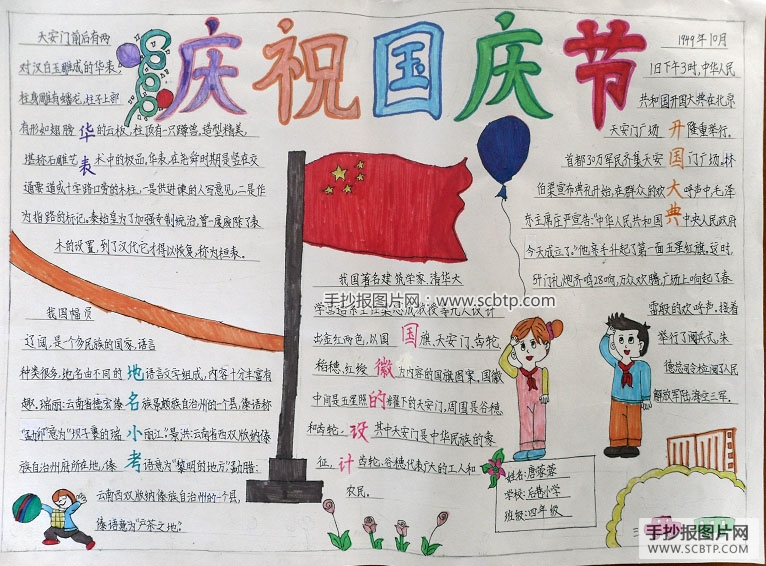 庆祝国庆节
天安门前后有两
对汉白玉雕成的华表,
柱身雕有蟠龙,柱子上部
有形如翅膀的云板,柱顶有一只蹲兽,造型精美,
堪称石雕艺术中的极品,华表,在尧舜时期是竖在交
通要道或十字路口旁的木柱,一是供进谏的人写意见,二是作
为指路的标记。秦始皇为了加强专制统治,曾一度废除了表
木的设置,到了汉代它才得以恢复,称为桓表。
华表
我国幅员
辽阔,是一个多民族的国家,语言
种类很多,地名由不同的语言文字组成,内容十分丰富有
趣。瑞丽:云南省德宏傣族景颇族自治州的一个县,傣语称
族自治州府所在地,傣语意为"黎明的地方"勐腊:
云南西双版纳傣族自治州的一个县,
傣语意为"产茶之地?
地名小考
我国著名建筑学家,清华大
出金红两色,以国旗、天安门、齿轮、
稻穗、红绫为内容的国旗图案。国徽
中间是五星照耀下的天安门,周围是谷穗
和齿轮,其中天安门是中华民族的象
征,齿轮,谷穗代表广大的工人和
农民。
国徽的设计
1949年10月
1日下午3时,中华人民
共和国开国大典在北京
天安门广场隆重举行。
首都30万军民齐集天安门广场,林
伯渠宣布典礼开始,在群众的欢呼声中,毛泽
东主席庄严宣告:"中华人民共和国中央人民政府
今天成立了。"他亲手升起了第一面五星红旗。这时,
54门礼炮齐鸣28响,万众欢腾,广场上响起了春
雷般的欢呼声。接着
举行了阅兵式,朱
德总司令检阅了人民
解放军陆海空三军。
开国大典
姓名:唐蓉蓉
学校:后巷小学
班级:四年级
手抄报图片网:www.scbtp.com
手抄报图片网
WWW.SCBTP.COM